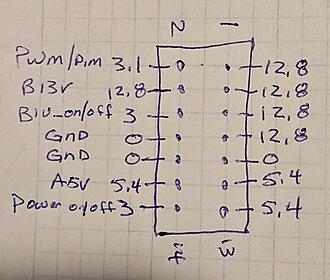 2 1
PWM/Dim 3,1 12,8
B13V 12,8 12,8
BIV_on/off 3 12,8
GND 0 12,8
GND 0 0
A5V 5.4 5.4
Power on/off 3 5,4
14 13